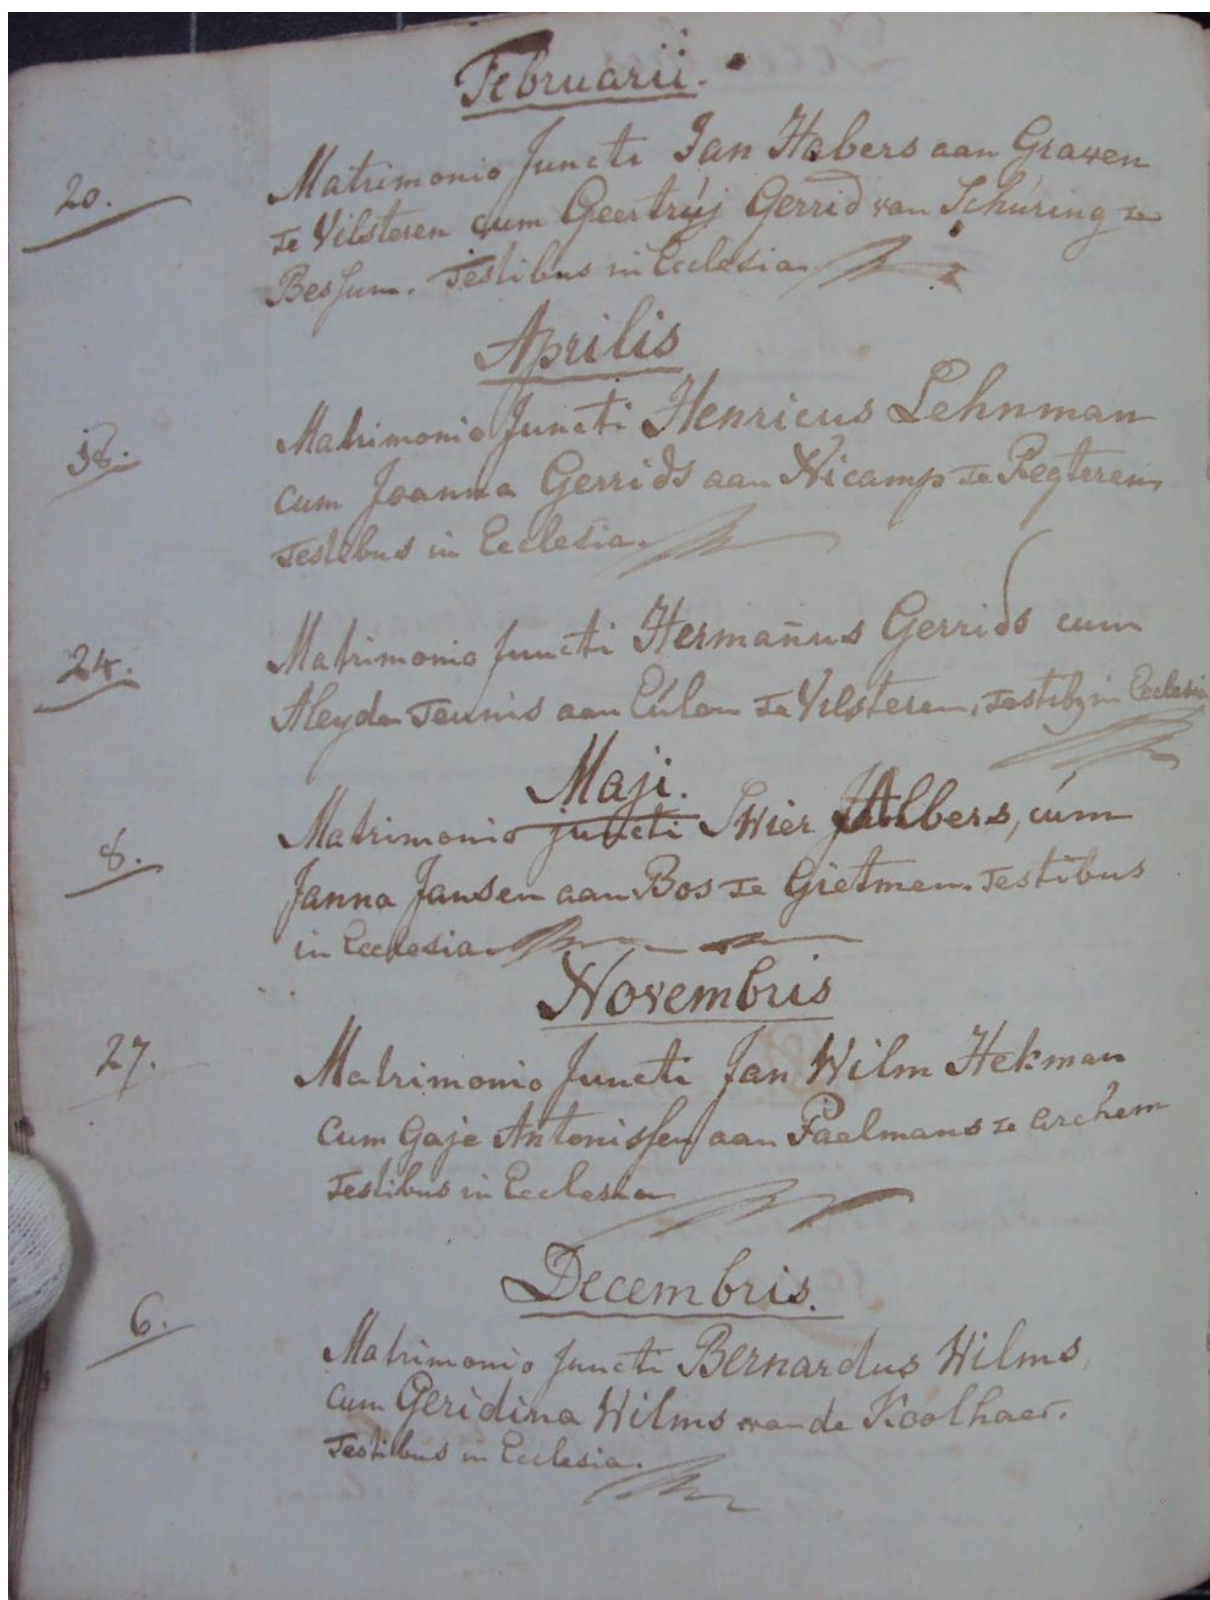 Februarii.
20. Matrimonio Juncti Jan Habers aan Graven
te Vilsteren cum Geertruÿ Gerrid van Schúring te
Bessum. Testibus in Ecclesia
Aprilis
18. Matrimonio Juncti Henricus Lehnman
cum Joanna Gerrids aan Nicamp te Regteren,
Testibus in Ecclesia.
24. Matrimonio Juncti Hermañus Gerrids cum
Aleyda Teunis aan te Vilsteren, Testib, in Ecclesia
Maji.
8. Matrimonio juncti Swier Albers, cúm
Janna Jansen aan Bos te Gietmen. Testibus
in Ecclesia
Novembris
27. Matrimonio Juncti Jan Wilm Hekman
Cum Gaje Antonissen aan Paelmans te archem
Testibus in Ecclesia
Decembris.
6. Matrimonio Juncti Bernardus Wilms,
cum Geridina Wilms van de Koolhaer.
Testibus in Ecclesia.